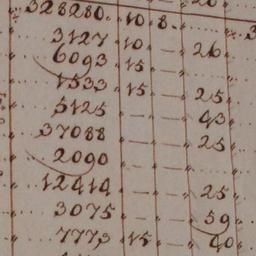 328280. 10 8.
3127 10 — 26
6093 15 —
1533 15 — 25
5125 — — 43
37088 — — 25
2090 — —
12414 — — 25
3075 — — 59
7773 15 — 40